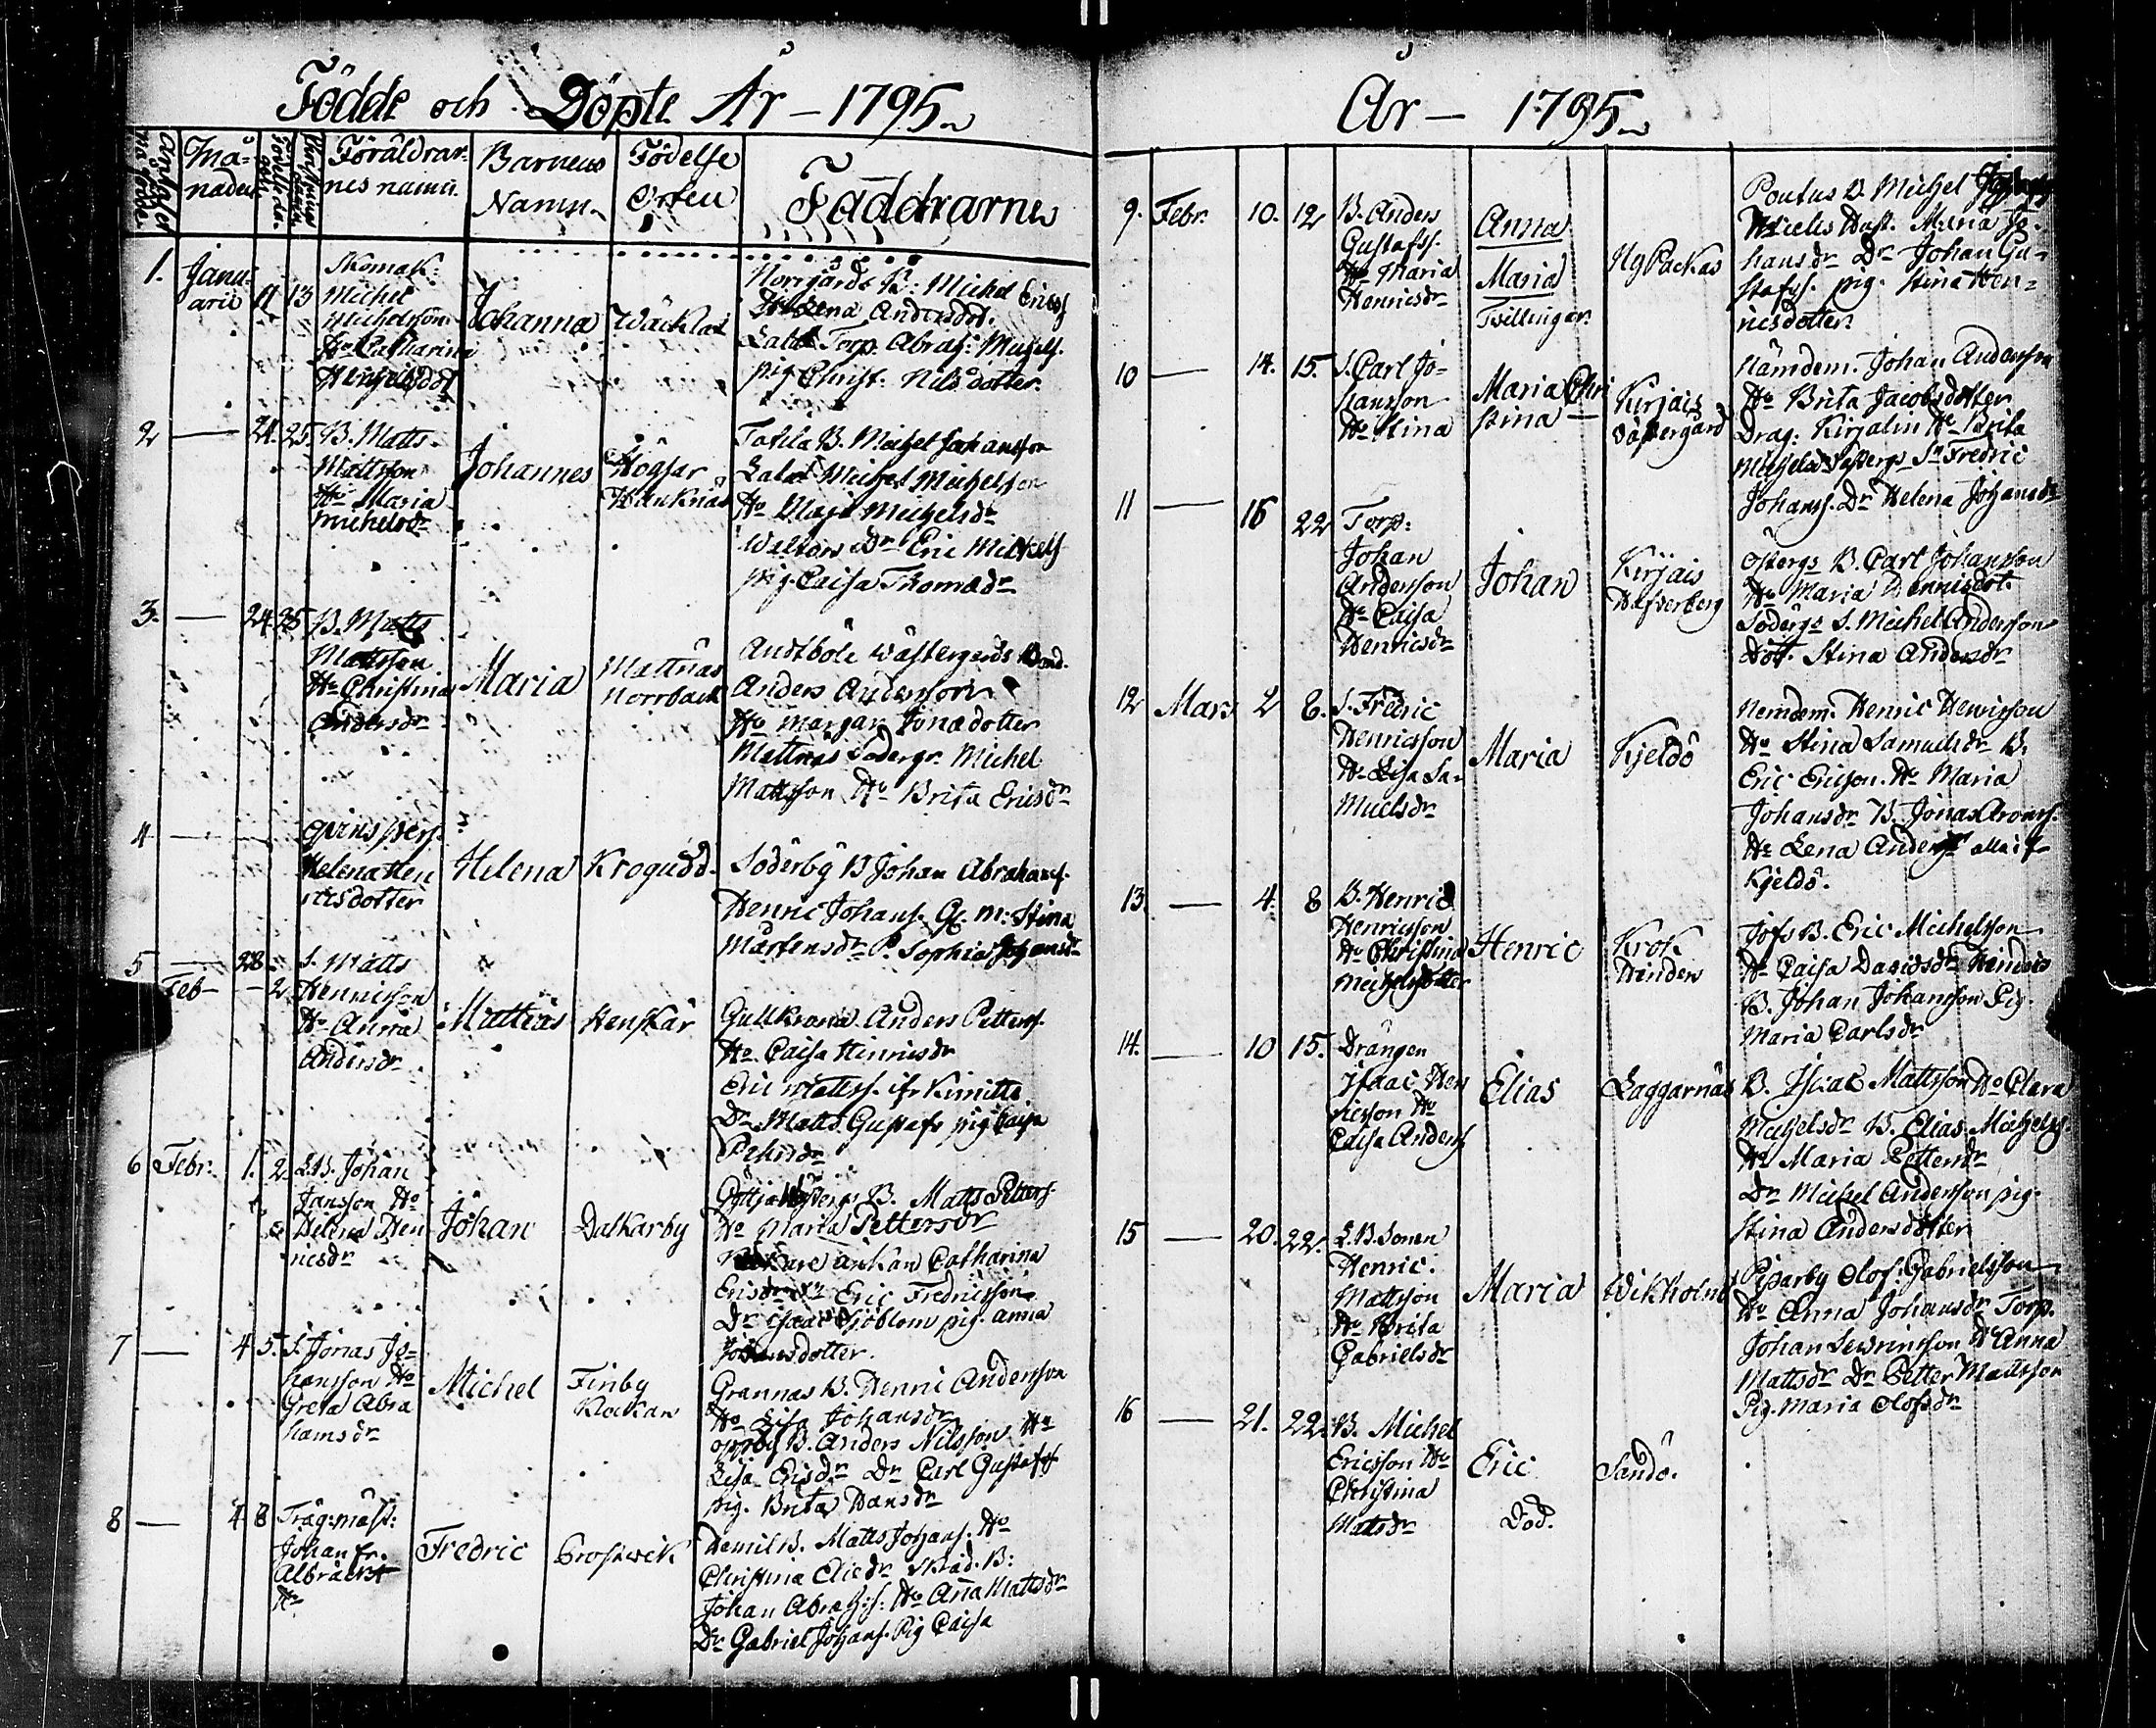 Födde och Döpte År – 1795
Må=
naden
Föräldrar=
nes namn.
Barnens
Namn
Födelse
Orten
Faddrarne
1. Janu=
arii 11 13
Skomak:
Michel
Michelsson
Hu Catharina
Johanna
Norrgårds B: Michel Erics
Lena Andersdot.
Torp. Abrah: Michels.
pig Christ. Nilsdotter.
2 — 24. 25. B. Matts
Mattsson
Hu Maria
Michelsdr
Johannes
Högsar
Hanknäs
Tafila B. Michel Johansson
Michel Michelsson
Hu Maja Michelsdr
Dr Eric Mickels
pig. Caisa Thomadr
3. — 24. 25 B. Matts
Mattsson
Hu Christina
Andersdr
Maria
Mattnäs
Norrback
Andtböle Wästergårds Bond.
Anders Andersson
Hu Margar. Jonædotter
Mattnäs Södergr. Michel
Mattsson Hu Brita Ericsdr
4 — —
Helena Hen
ricsdotter
Helena
Krogudd
Söderby B Johan Abrahams.
Henric Johans. G. m: Stina
Mårtensdr P. Sophia Johansdr
5 — 28
Feb – – 2
S. Matts
Henricsson
Hu Anna
Andersdr
Mattias
Henskär
Gullkrona Anders Petters.
Hu Caisa Hinricsdr
Eric Mattss. ifr Kimitto
Dr Matts Gustafs pig Caisa
Pehrsdr
6 Febr. 1. 2. L.B. Johan
Jansson Hu
Helena Hen
ricsdr
Johan
Dalkarby
B. Matts Petters.
Hu Maria Pettersdr
änkan Catharina
Ericsdr Eric Fredricsson
Dr Isaac Sjöblom pig. Anna
Johansdotter.
7 — 4 5. S. Jonas Jo=
hansson Hu
Greta Abra
hamsdr
Michel
Finby
Klockar
Grannas B. Henric Andersson
Hu Lisa Johansdr
B. Anders Nilsson Hu
Lisa Ericsdr Dr Carl Gustafss
pig. Brita Hansdr
8 — 4 8 Träg:mäst:
Johan Fr.
Albrackt
Hu
Fredric
Prostwik
Domil B. Matts Johans. Hu
Christina Eliedr Skräd. B:
Johan Abrahs: Hu Anna Mattsdr
Dr Gabriel Johans. Pig Caisa
År — 1795
9. Febr. 10. 12 B. Anders
Gustafss.
Hu Maria
Henricsdr
Anna
Maria
Twillingar
NyPackas
Pontus B. Michel
Maria Jo-
hansdr Dr Johan Gu-
stafss. pig. Stina Hen=
ricsdotter.
10 — 14. 15. S. Carl Jo=
hansson
Hu Stina
Maria Chri
stina
Kirjais
Västergård
Nämdem. Johan Andersson
Hu Brita Jacobsdotter
Drag: Kirjalin Hu Brita
Michelsdr Västergs Sn Fredric
Johanss. Dr Helena Johansdr
11 — 16 22 Torp:
Johan
Andersson
Hu Caisa
Henricsdr
Johan
Kirjais
Hafverberg
Östergs B. Carl Johansson
Hu Maria Hennicdot.
Södergs S. Michel Andersson
Dott. Stina Andersdr
12 Mars 2 8. S. Fredric
Henricsson
Hu Lisa Sa=
muelsdr
Maria
Kjeldö
Nemdem. Henric Henricsson
Hu Stina Samuelsdr B.
Eric Ericsson. Hu Maria
Johansdr B. Jonas Arons.
Hu Lena Andersdr alla if
Kjeldö.
13. — 4. 8 B. Henric
Henricsson
Hu Christina
Michelsdotter
Henric
Krok
Hinders
B. Eric Michelsson
Hu Caisa Davidsdr Hinders
B. Johan Johansson Pig.
Maria Carlsdr
14. — 10 15. Drängen
Isaac Hen
ricsson Hu
Caisa Anders
Elias
Laggarnäs
B. Isaac Mattsson Hu Clara
Michelsdr B. Elias Michelss.
Hu Maria Pettersdr
Dr Michel Andersson pig.
Stina Andersdotter
15 — 20. 22. L.B. Sonen
Henric.
Mattsson
Hu Brita
Gabrielsdr
Maria
Wikholm
Pijparby Olof Gabrielsson
Hu Anna Johansdr Torp.
Johan Hu Anna
Mattsdr Dr Petter Mattsson
Pig. Maria Olofsdr
16 — 21. 22. B. Michel
Ericsson Hu
Christina
Mattsdr
Eric
Död.
Sandö.